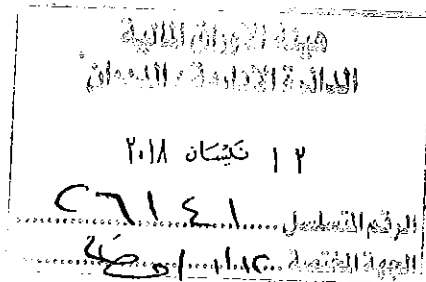 هيئة الأوراق المالية
الدائرة الإدارية / الديوان
١٢ نيسان ٢٠١٨
الرقم المتسلسل
الجهة المختصة